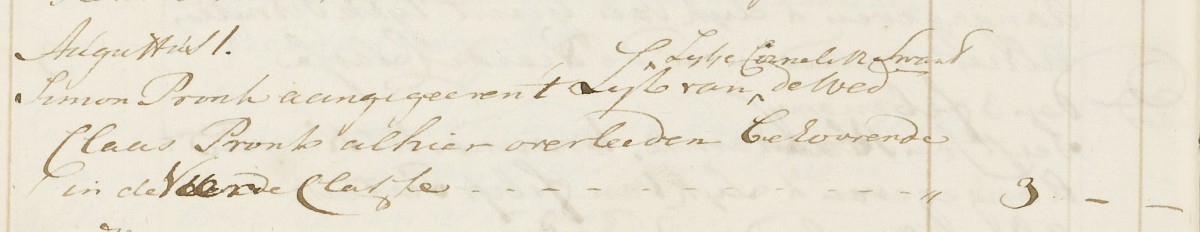 Augustus 1.
Lysje Cornelis Swart
Simon Pronk aangegeeven 't Lyk van de Wed
Claas Pronk alhier overleeden behoorende
in de Vierde Classe - - - - - - - - - - - - " 3 - -